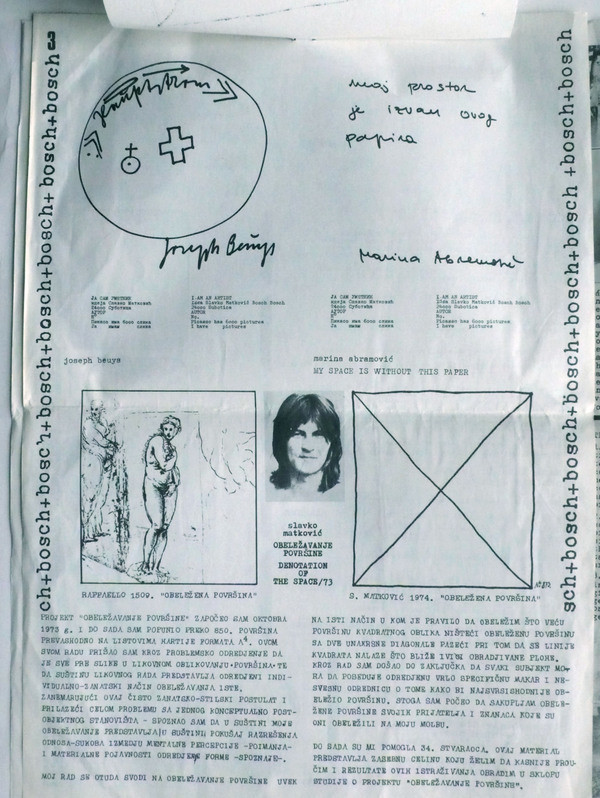 ch+bosch+bosch+bosch+bosch+bosch+bosch+bosch+bosch 3
Hauptstrom
Joseph Beuys
moj prostor
je izvan ovog
papira
Marina Abramović
sch+bosch+bosch+bosch+bosch+bosch+bosch+bosch+bosch
I AM AN ARTIST
AUTOR
No.
Picasso has 6000 pictures
I have pictures
I AM AN ARTIST
AUTOR
No.
Picasso has 6000 pictures
I have pictures
joseph beuys
marina abramović
MY SPACE IS WITHOUT THIS PAPER
slavko
matković
OBELEŽAVANJE
POVRŠINE
DENOTATION
OF
THE SPACE/73
RAFFAELLO 1509. "OBELEŽENA POVRŠINA"
S. MATKOVIĆ 1974. "OBELEŽENA POVRŠINA"
PROJEKT "OBELEŽAVANJE POVRŠINE" ZAPOČEO SAM OKTOBRA
1973 g. I DO SADA SAM POPUNIO PREKO 850. POVRŠINA
PREVASHODNO NA LISTOVIMA HARTIJE FORMATA A4. OVOM
SVOM RADU PRIŠAO SAM KROZ PROBLEMSKO ODREDJENJE DA
JE SVE PRE SLIKE U LIKOVNOM OBLIKOVANJU-POVRŠINA-TE
DA SUŠTINU LIKOVNOG RADA PREDSTAVLJA ODREDJENI INDI-
VIDUALNO-ZANATSKI NAČIN OBELEŽAVANJA ISTE.
ZANEMARUJUĆI OVAJ ČISTO ZANATSKO-STILSKI POSTULAT I
PRILAZEĆI CELOM PROBLEMU SA JEDNOG KONCEPTUALNO POST-
OBJEKTNOG STANOVIŠTA - SPOZNAO SAM DA U SUŠTINI MOJE
OBELEŽAVANJE PREDSTAVLJA/U SUŠTINI/ POKUŠAJ RAZREŠENJA
ODNOSA-SUKOBA IZMEDJU MENTALNE PERCEPCIJE -POIMANJA-
I MATERIALNE POJAVNOSTI ODREDJENE FORME -SPOZNAJE-.
MOJ RAD SE OTUDA SVODI NA OBELEŽAVANJE POVRŠINE UVEK
NA ISTI NAČIN U KOM JE PRAVILO DA OBELEŽIM ŠTO VEĆU
POVRŠINU KVADRATNOG OBLIKA NIŠTEĆI OBELEŽENU POVRŠINU
SA DVE UNAKRSNE DIJAGONALE PAZEĆI PRI TOM DA SE LINIJE
KVADRATA NALAZE ŠTO BLIŽE IVICI OBRADJIVANE PLOHE.
KROZ RAD SAM DOŠAO DO ZAKLJUČKA DA SVAKI SUBJEKT MO-
RA DA POSEDUJE ODREDJENU VRLO SPECIFIČNU MAKAR I NE-
SVESNU ODREDNICU O TOME KAKO BI NAJSVRSISHODNIJE OB-
ELEŽIO POVRŠINU. STOGA SAM POČEO DA SAKUPLJAM OBELE-
ŽENE POVRŠINE SVOJIH PRIJATELJA I ZNANACA KOJE SU
ONI OBELEŽILI NA MOJU MOLBU.
DO SADA SU MI POMOGLA 34. STVARAOCA. OVAJ MATERIAL
PREDSTAVLJA ZASEBNU CELINU KOJU ŽELIM DA KASNIJE PROU-
ČIM I REZULTATE OVIH ISTRAŽIVANJA OBRADIM U SKLOPU
STUDIJE O PROJEKTU "OBELEŽAVANJE POVRŠINE".